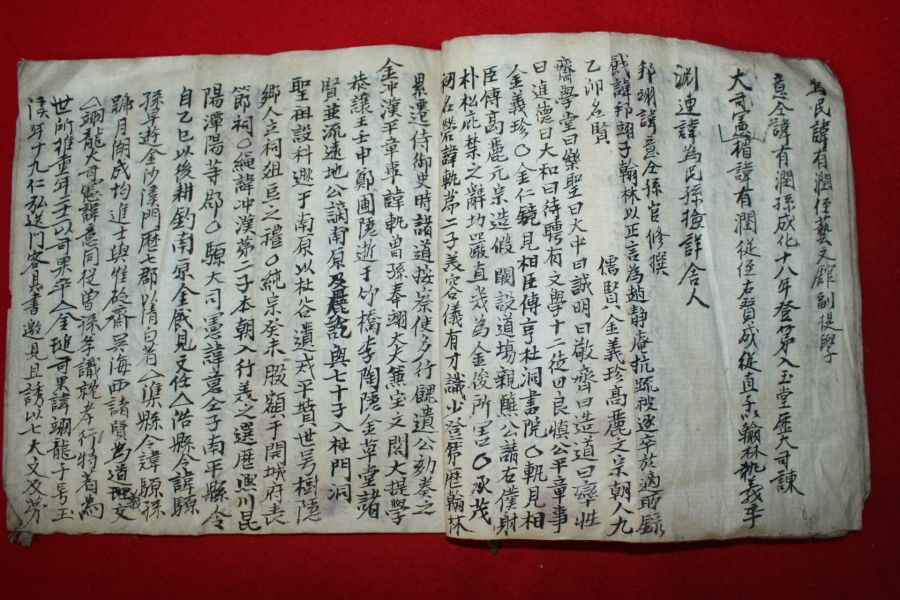 為民諱有潤侄藝文館副提學
意全諱有潤孫成化十八年登第入玉堂歷大司諫
大司憲楷諱有潤從侄左贊成從直孫翰林
淵連諱為民孫檢詳舍人
邦翊諱意全孫官修撰
戭諱邦翊子翰林以正言為趙靜庵抗疏被逐卒於謫所錄
乙卯名賢 儒賢金義珍高麗文宗朝人九
齋學堂曰樂聖曰大中曰誠明曰敬齋曰造道曰率性
曰進德曰大和曰待聘有文學十二徒曰良慎公平章事
金義珍○金仁鏡見相臣傳亨杜洞書院○軌見相
臣傳高麗元宗造假闕設道場親醮公請右僕射
朴松庇禁之辭功嚴直幾為金俊所害○承茂
初名諱軌第二子美容儀有才識少登第歷翰林
累遷侍御史時諸道按察使多行饋遺公劾奏之
金冲漢平章事諱軌曾孫奉翊大夫寶文閣大提學
恭讓王壬申鄭圃隱逝于竹橋李陶隱金草堂諸
賢並流遠地公謫南原及麗訖與七十子入杜門洞
聖祖設科遯于南原以杜谷遺戒平墳世号樹隱
鄉人立祠俎豆之禮○純宗癸未股額于開城府表
節祠○繩諱冲漢第二子本朝入行義之選歷漣川昆
陽潭陽等郡○驥大司憲諱意全子南平縣令
自乙巳以後耕釣南原金戭見文任△浩縣令諱驥
孫早遊金沙溪門歷七郡以清白著△準縣令諱驥孫
號月湖成均進士與惟於齋吳海西諸賢為道義文
△翊龍大司憲諱意同從曾孫孝行特著為
世所推重年二十二以司果卒△金璉司果諱翊龍子号玉
溪年十九仁弘送門客具書邀且誘以七大文及蒡